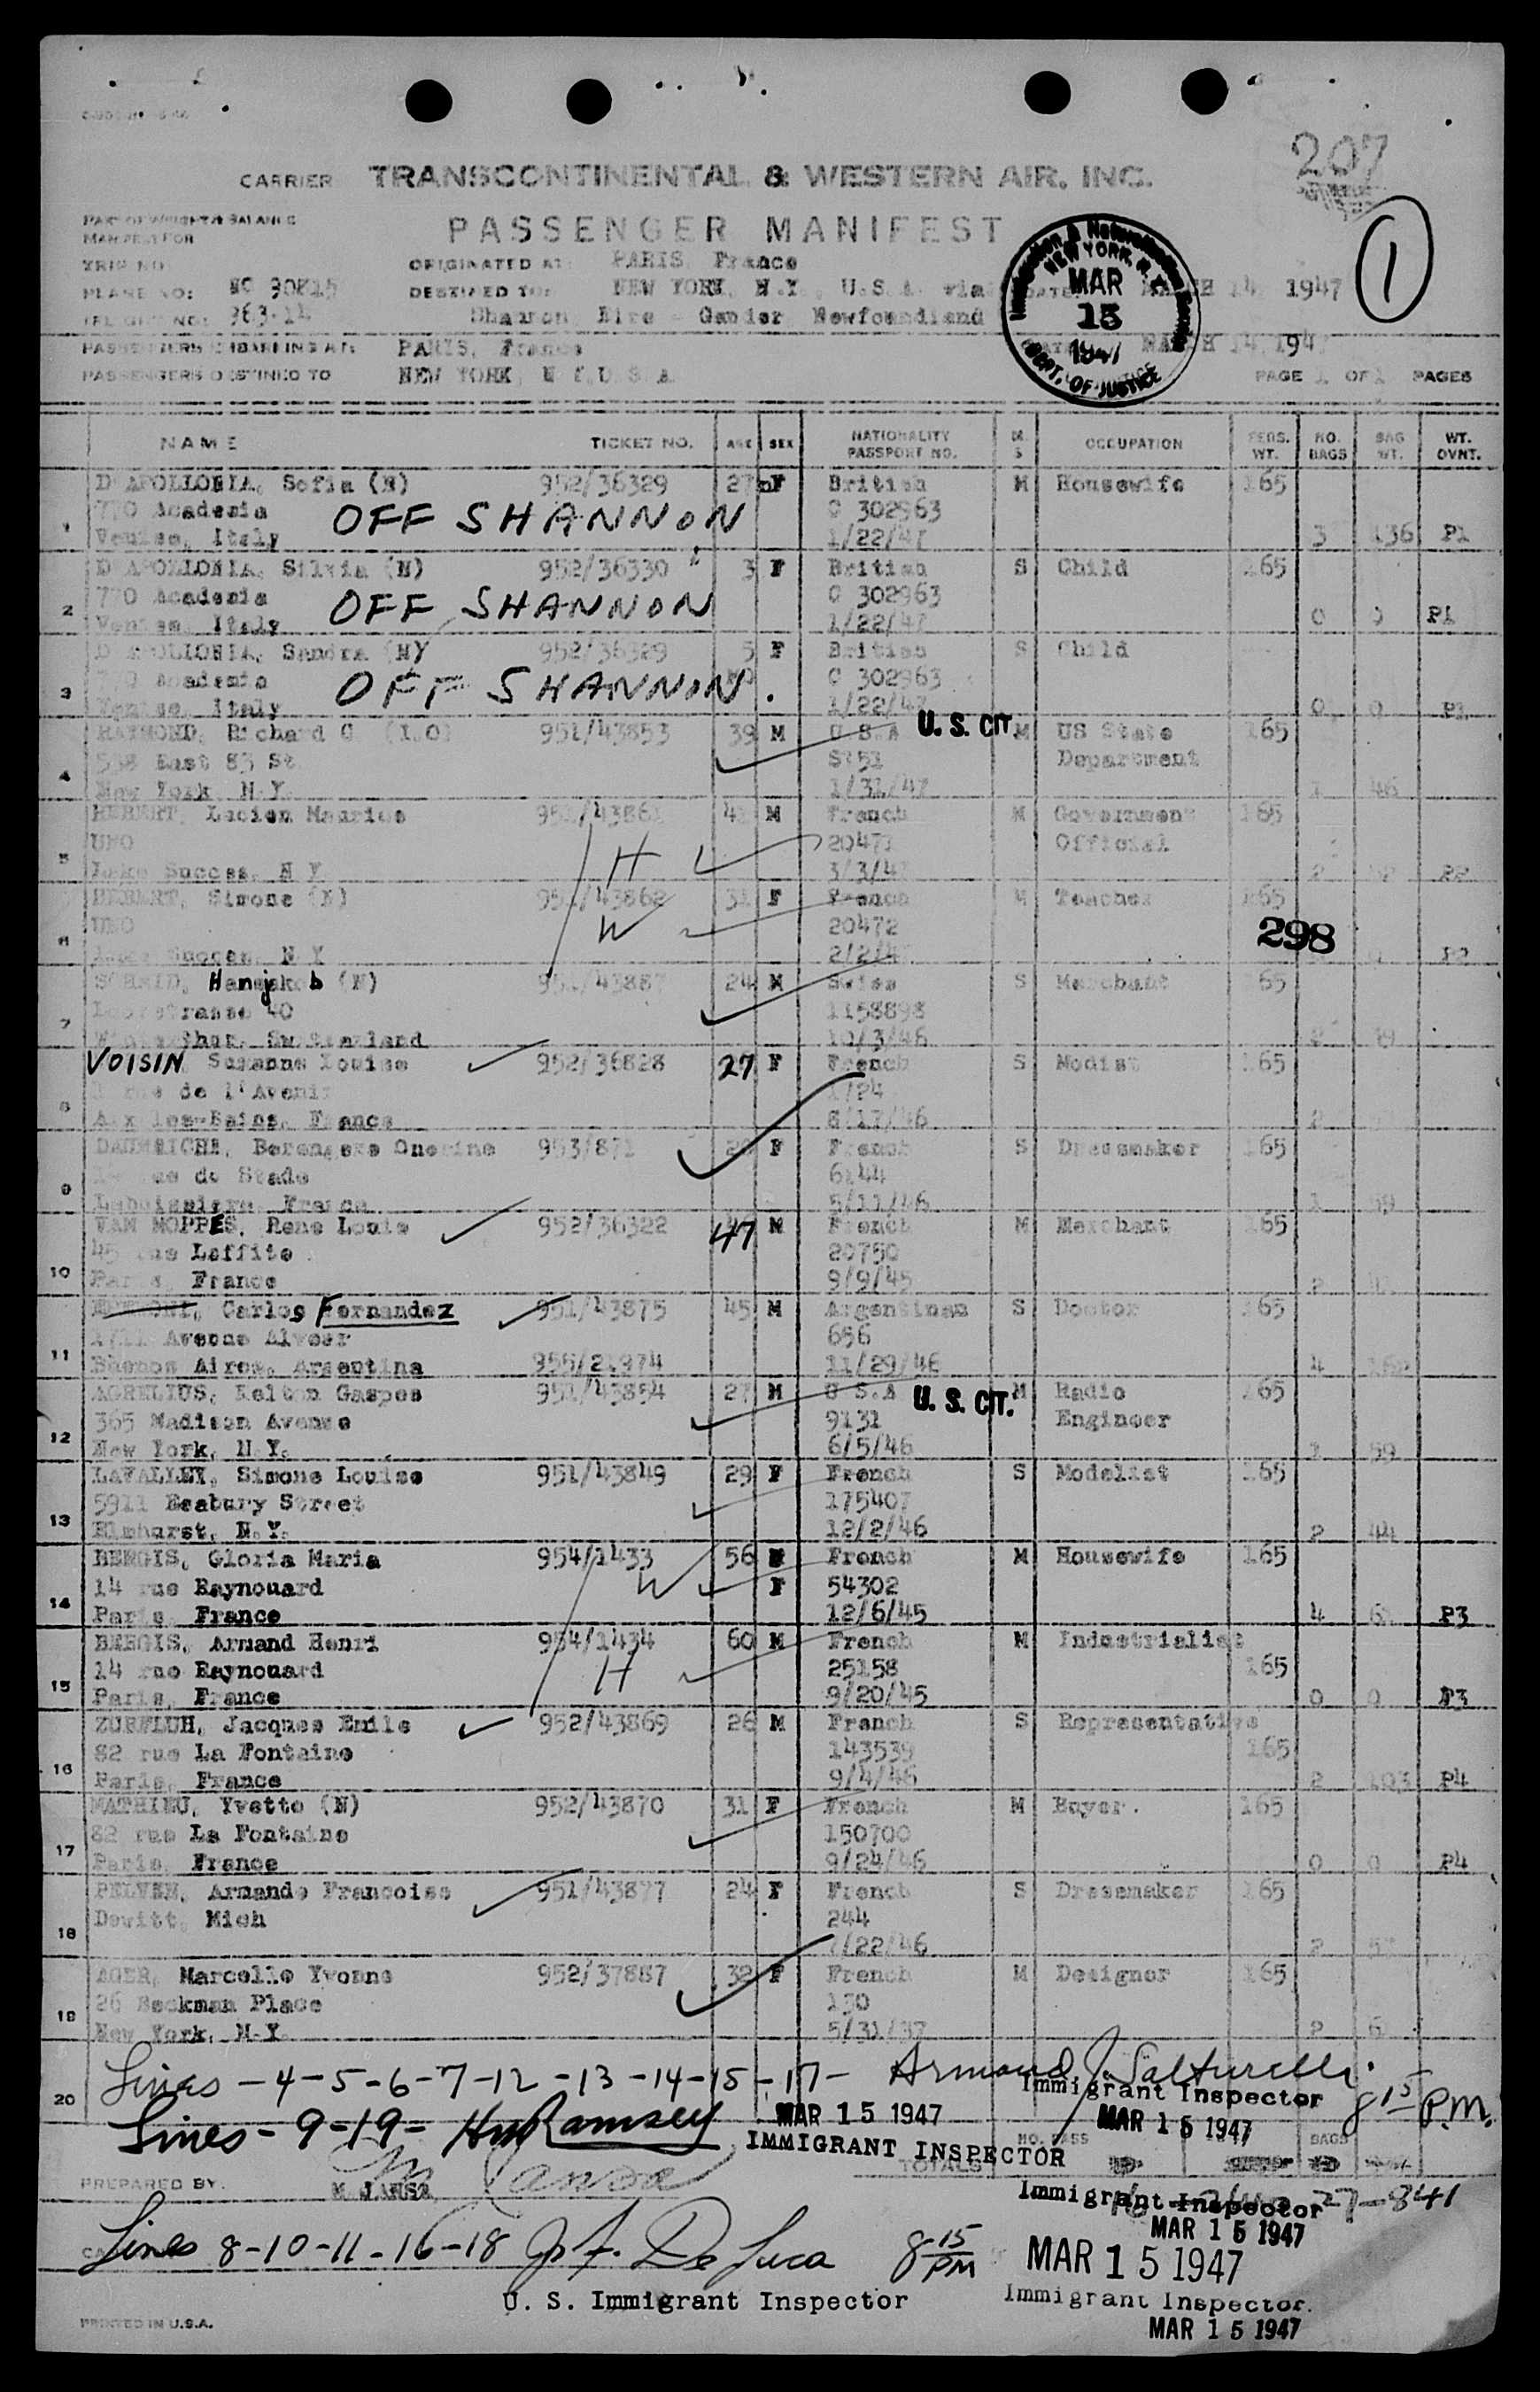 207
CARRIER TRANSCONTINENTAL & WESTERN AIR, INC.
PART OF WEIGHT & BALANCE
MANIFEST FOR
PASSENGER MANIFEST
1
TRIP NO.
ORIGINATED AT: PARIS, France
PLANE NO: NC 90815
DESTINED TO: NEW YORK, N.Y., U.S.A. via DATE: MARCH 14, 1947
FLIGHT NO: 963-14
Shannon, Eire - Gander Newfoundland
PASSENGERS EMBARKING AT: PARIS, France
MARCH 14, 1947
PASSENGERS DESTINED TO NEW YORK, N.Y., U.S.A.
PAGE 1 OF 1 PAGES
Immigration & Naturalization Service
NEW YORK, N.Y.
MAR
15
1947
DEPT. OF JUSTICE
NAME TICKET NO. AGE SEX NATIONALITY PASSPORT NO. M. S OCCUPATION PERS. WT. NO. BAGS BAG WT. WT. OVNT.
D'APOLLONIA, Sofia (N) 952/36329 27 F British M Housewife 165
770 Academia OFF SHANNON C 302963
1 Venise, Italy 1/22/47 3 136 P1
D'APOLLONIA, Silvia (N) 952/36330 3 F British S Child 165
770 Academia OFF SHANNON C 302963
2 Venise, Italy 1/22/47 0 0 P1
D'APOLLONIA, Sandra (N) 952/36329 5 F British S Child
770 Academia OFF SHANNON. C 302963
3 Venise, Italy 1/22/47 0 0 P1
RAYMOND, Richard G 951/43853 39 M U.S.A U.S. CIT. M US State 165
538 East 83 St. Department
4 New York, N.Y. 1/31/47 1 46
HEBERT, Lucien Maurice 951/43861 M French M Government 165
UNO H 20471 Official
5 Lake Succes, N Y 3/3/47 2 P2
HEBERT, Simone (N) 951/43862 31 F French M Teacher 165
UNO W 20472 298
6 Lake Succes, N Y 2/2/4 P2
SCHMID, Hansjakob (N) 951/43887 24 M Swiss S Merchant 165
40 1158898
7 Winterthur, Switzerland 10/3/46 2
VOISIN Suzanne Louise 952/36828 27 F French S Modist 165
rue de l'Avenir 1724
8 Aix les-Bains, France 8/17/46 2
Berengere Onorine 953/871 F French S Dressmaker 165
rue du Stade 6144
9 France 5/11/46 1 59
VAN MOPPES, Rene Louis 952/36322 47 M French M Merchant 165
45 rue Laffite 20750
10 Paris, France 9/9/45 2
Carlos Fernandez 951/43875 45 M Argentinan S Doctor 165
Avenue Alvear 656
11 Buenos Aires, Argentina 955/21974 11/29/46 4
AGRELIUS, Kelton Gaspes 951/43854 27 M U S.A U.S. CIT. M Radio 165
365 Madison Avenue 9131 Engineer
12 New York, N.Y. 6/5/46 1 59
LAVALLEY, Simone Louise 951/43849 29 F French S Modelist 165
5911 Seabury Street 175407
13 Elmhurst, N.Y. 12/2/46 2 44
BERGIS, Gloria Maria 954/1433 56 F French M Housewife 165
14 rue Raynouard W 54302
14 Paris, France 12/6/45 4 P3
BERGIS, Armand Henri 954/1434 60 M French M Industrialist
14 rue Raynouard H 25158 165
15 Paris, France 9/20/45 0 0 P3
ZURFLUH, Jacques Emile 952/43869 26 M French S Representative
82 rue La Fontaine 143539 165
16 Paris, France 9/4/46 2 103 P4
MATHIEU, Yvette (N) 952/43870 31 F French M Buyer. 165
82 rue La Fontaine 150700
17 Paris, France 9/24/46 0 0 P4
PELVEN, Armande Francoise 951/43877 24 F French S Dressmaker 165
Dewitt, Mich 244
18 7/22/46 2
AGER, Marcelle Yvonne 952/37887 32 F French M Designer 165
26 Beekman Place 130
19 New York, N.Y. 5/31/37 2
20 Lines -4-5-6-7-12-13-14-15-17- Armand J. Salturelli
Immigrant Inspector 8 15 P.M.
Lines - 9-19- Ramsey MAR 15 1947 MAR 15 1947
IMMIGRANT INSPECTOR
NO. PASS BAGS
TOTALS
PREPARED BY. M JANSA
Immigrant Inspector 27-841
MAR 15 1947
Lines 8-10-11-16-18 J. F. De Luca 8 15 PM MAR 15 1947
U. S. Immigrant Inspector Immigrant Inspector.
PRINTED IN U.S.A. MAR 15 1947